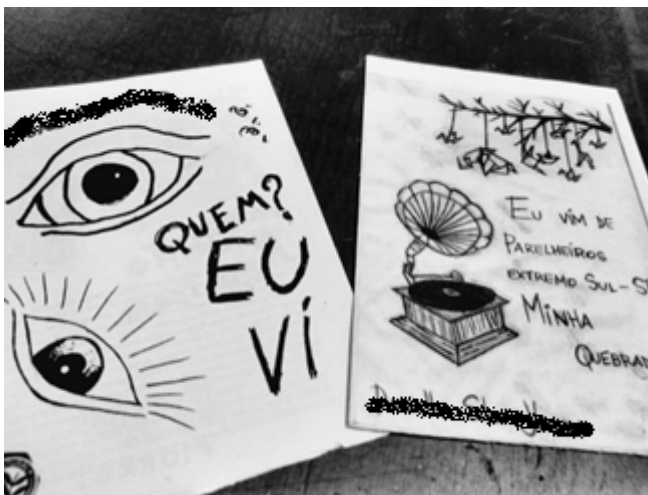 QUEM?
EU
Ví
EU VIM DE
PARELHEIROS
EXTREMO SUL-S
MINHA
QUEBRAD